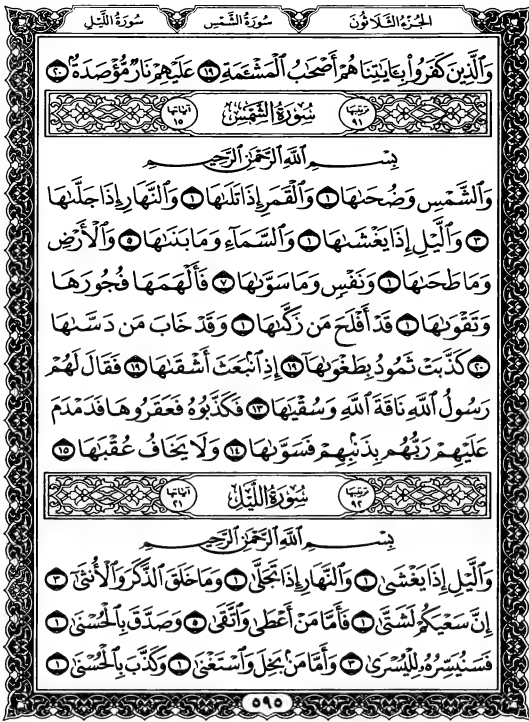 الجزء الثلاثون سورة الشمس سورة الليل
وَالَّذِينَ كَفَرُوا۟ بِـَٔايَـٰتِنَا هُمْ أَصْحَـٰبُ الْمَشْـَٔمَةِ ١٩ عَلَيْهِمْ نَارٌ مُّؤْصَدَةٌۢ ٢٠
ترتيبها ٩١ سُورَةُ الشَّمْسِ آياتها ١٥
بِسْمِ اللَّهِ الرَّحْمَـٰنِ الرَّحِيمِ
وَالشَّمْسِ وَضُحَىٰهَا ١ وَالْقَمَرِ إِذَا تَلَىٰهَا ١ وَالنَّهَارِ إِذَا جَلَّىٰهَا
٣ وَالَّيْلِ إِذَا يَغْشَىٰهَا ١ وَالسَّمَآءِ وَمَا بَنَىٰهَا ٥ وَالْأَرْضِ
وَمَا طَحَىٰهَا ١ وَنَفْسٍ وَمَا سَوَّىٰهَا ٧ فَأَلْهَمَهَا فُجُورَهَا
وَتَقْوَىٰهَا ١ قَدْ أَفْلَحَ مَن زَكَّىٰهَا ١ وَقَدْ خَابَ مَن دَسَّىٰهَا
٢٠ كَذَّبَتْ ثَمُودُ بِطَغْوَىٰهَآ ١٩ إِذِ انۢبَعَثَ أَشْقَىٰهَا ١٩ فَقَالَ لَهُمْ
رَسُولُ اللَّهِ نَاقَةَ اللَّهِ وَسُقْيَـٰهَا ١٣ فَكَذَّبُوهُ فَعَقَرُوهَا فَدَمْدَمَ
عَلَيْهِمْ رَبُّهُم بِذَنۢبِهِمْ فَسَوَّىٰهَا ١٤ وَلَا يَخَافُ عُقْبَـٰهَا ١٥
ترتيبها ٩٢ سُورَةُ اللَّيْلِ آياتها ٢١
بِسْمِ اللَّهِ الرَّحْمَـٰنِ الرَّحِيمِ
وَالَّيْلِ إِذَا يَغْشَىٰ ١ وَالنَّهَارِ إِذَا تَجَلَّىٰ ١ وَمَا خَلَقَ الذَّكَرَ وَالْأُنثَىٰٓ ٣
إِنَّ سَعْيَكُمْ لَشَتَّىٰ ١ فَأَمَّا مَنْ أَعْطَىٰ وَاتَّقَىٰ ٥ وَصَدَّقَ بِالْحُسْنَىٰ ١
فَسَنُيَسِّرُهُۥ لِلْيُسْرَىٰ ٣ وَأَمَّا مَنۢ بَخِلَ وَاسْتَغْنَىٰ ١ وَكَذَّبَ بِالْحُسْنَىٰ ١
٥٩٥